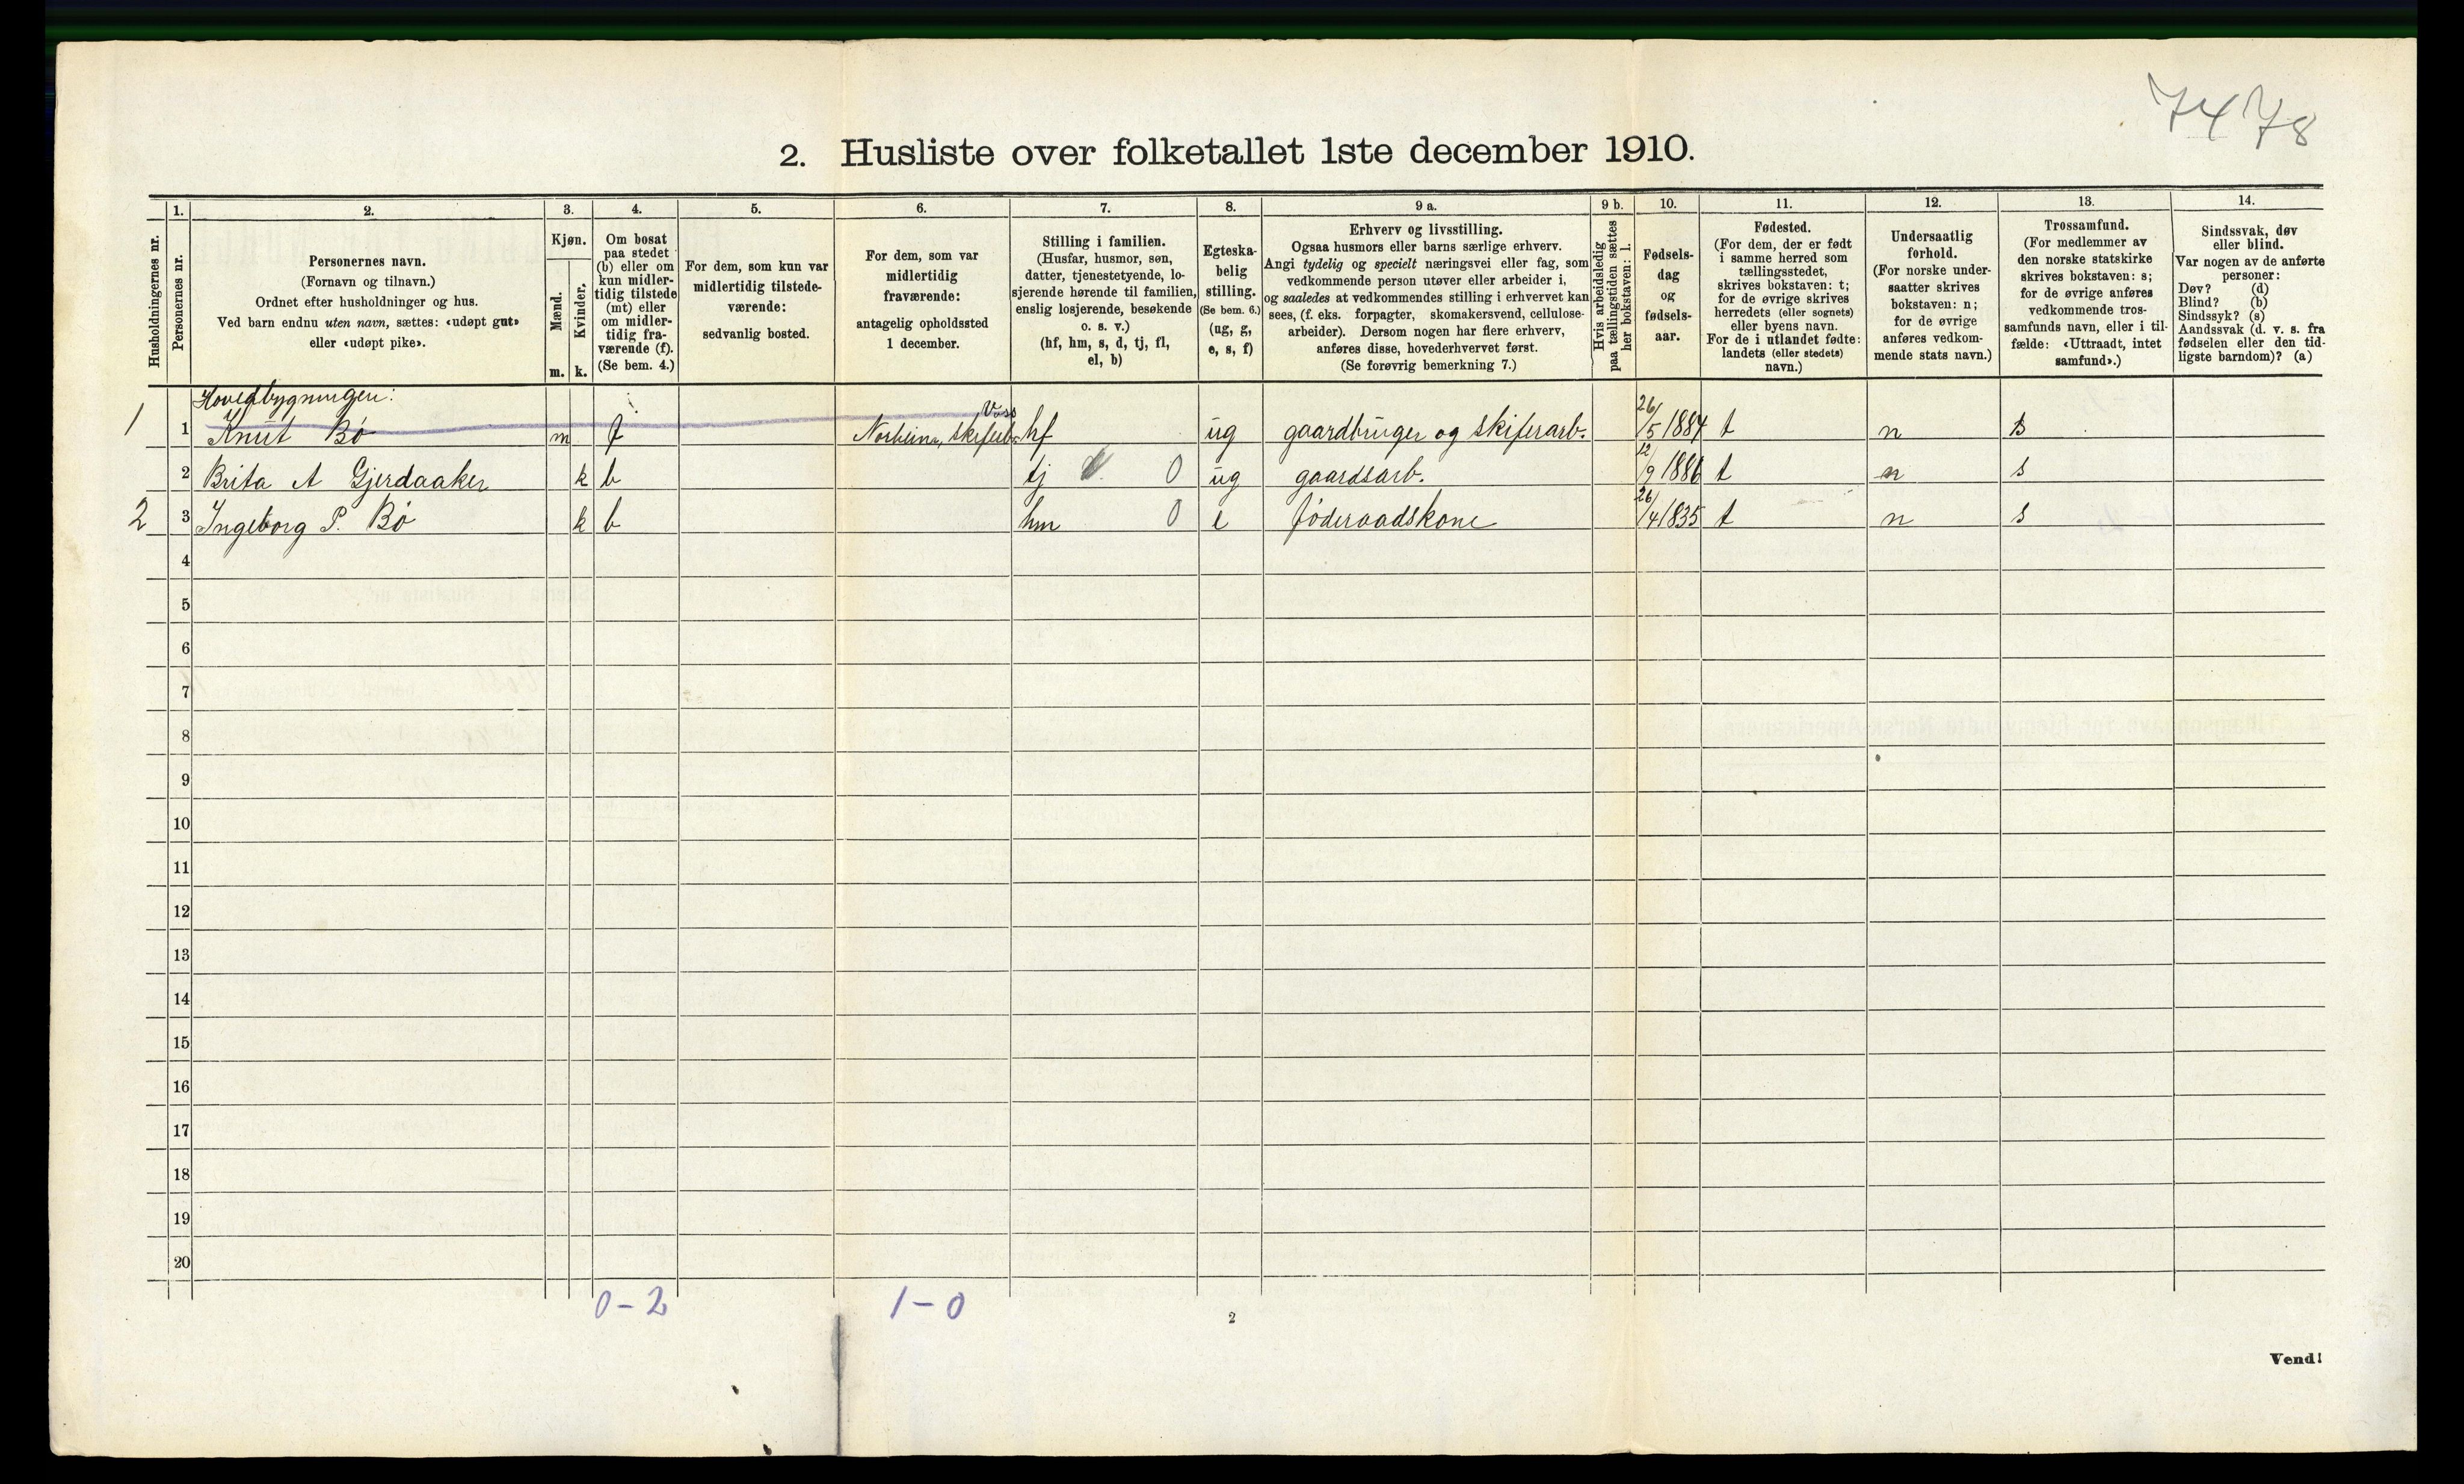 7478
2. Husliste over folketallet 1ste december 1910.
Husholdningernes nr.
1.
Personernes nr.
2.
Personernes navn.
(Fornavn og tilnavn.)
Ordnet efter husholdninger og hus.
Ved barn endnu uten navn, sættes: «udøpt gut»
eller «udøpt pike».
3.
Kjøn.
Mænd.
Kvinder.
m. k.
4.
Om bosat
paa stedet
(b) eller om
kun midler-
tidig tilstede
(mt) eller
om midler-
tidig fra-
værende (f).
(Se bem. 4.)
5.
For dem, som kun var
midlertidig tilstede-
værende:
sedvanlig bosted.
6.
For dem, som var
midlertidig
fraværende:
antagelig opholdssted
1 december.
7.
Stilling i familien.
(Husfar, husmor, søn,
datter, tjenestetyende, lo-
sjerende hørende til familien,
enslig losjerende, besøkende
o. s. v.)
(hf, hm, s, d, tj, fl,
el, b)
8.
Egteska-
belig
stilling.
(Se bem. 6.)
(ug, g,
e, s, f)
9 a.
Erhverv og livsstilling.
Ogsaa husmors eller barns særlige erhverv.
Angi tydelig og specielt næringsvei eller fag, som
vedkommende person utøver eller arbeider i,
og saaledes at vedkommendes stilling i erhvervet kan
sees, (f. eks. forpagter, skomakersvend, cellulose-
arbeider). Dersom nogen har flere erhverv,
anføres disse, hovederhvervet først.
(Se forøvrig bemerkning 7.)
9 b.
Hvis arbeidsledig
paa tællingstiden sættes
her bokstaven: l.
10.
Fødsels-
dag
og
fødsels-
aar.
11.
Fødested.
(For dem, der er født
i samme herred som
tællingsstedet,
skrives bokstaven: t;
for de øvrige skrives
herredets (eller sognets)
eller byens navn.
For de i utlandet fødte:
landets (eller stedets)
navn.)
12.
Undersaatlig
forhold.
(For norske under-
saatter skrives
bokstaven: n;
for de øvrige
anføres vedkom-
mende stats navn.)
13.
Trossamfund.
(For medlemmer av
den norske statskirke
skrives bokstaven: s;
for de øvrige anføres
vedkommende tros-
samfunds navn, eller i til-
fælde: «Uttraadt, intet
samfund».)
14.
Sindssvak, døv
eller blind.
Var nogen av de anførte
personer:
Døv? (d)
Blind? (b)
Sindssyk? (s)
Aandssvak (d. v. s. fra
fødselen eller den tid-
ligste barndom)? (a)
Hovedbygningen:
Voss
1 1 Knut Bø m f Norheim, skiferb. hf ug gaardbruger og skiferarb. 26/5 1884 t n s
2 Brita A Gjerdaaker k b tj 0 ug gaardsarb. 12/9 1886 t n s
2 3 Ingeborg P. Bø k b hm 0 e føderaadskone 26/4 1835 t n s
4
5
6
7
8
9
10
11
12
13
14
15
16
17
18
19
20
0-2 1-0
2
Vend!